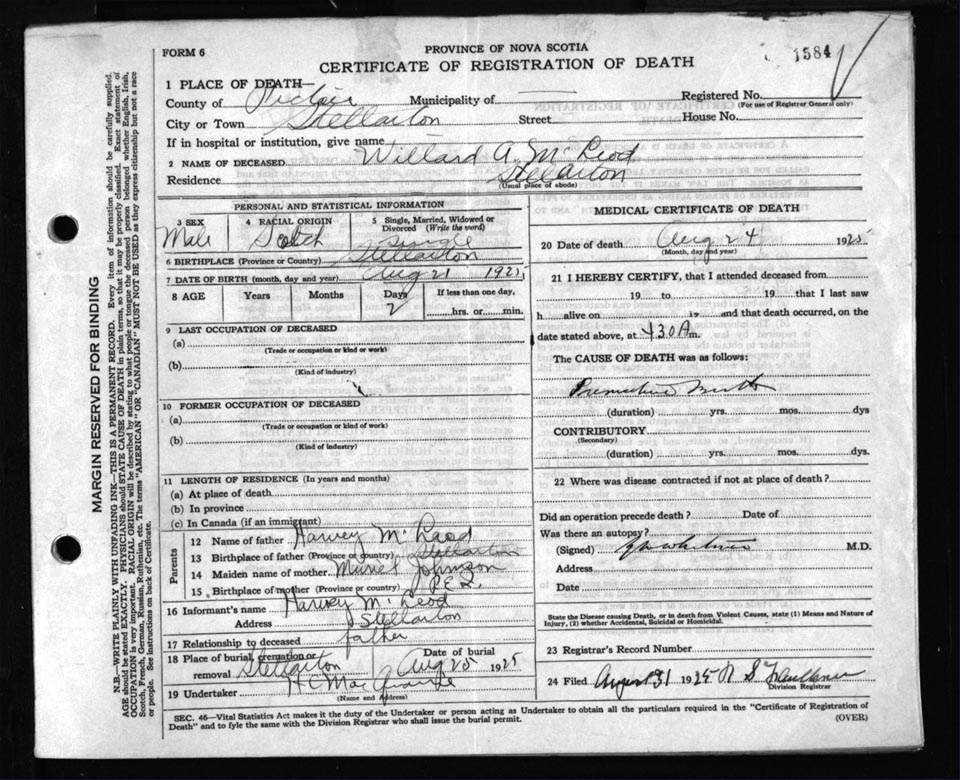 FORM 6
PROVINCE OF NOVA SCOTIA
CERTIFICATE OF REGISTRATION OF DEATH
1584
1 PLACE OF DEATH—
County of Pictou Municipality of — Registered No.
(For use of Registrar General only)
City or Town Stellarton Street House No.
If in hospital or institution, give name
2 NAME OF DECEASED Willard A. McLeod
Residence Stellarton
(Usual place of abode)
PERSONAL AND STATISTICAL INFORMATION
3 SEX
Male
4 RACIAL ORIGIN
Scotch
5 Single, Married, Widowed or Divorced (Write the word)
Single
6 BIRTHPLACE (Province or Country) Stellarton
7 DATE OF BIRTH (month, day and year) Aug 21 1925
8 AGE Years Months Days If less than one day,
2 hrs. or min.
9 LAST OCCUPATION OF DECEASED
(a)
(Trade or occupation or kind or work)
(b)
(Kind of industry)
10 FORMER OCCUPATION OF DECEASED
(a)
(Trade or occupation or kind of work)
(b)
(Kind of industry)
11 LENGTH OF RESIDENCE (In years and months)
(a) At place of death
(b) In province
(c) In Canada (if an immigrant)
Parents
12 Name of father Harvey McLeod
13 Birthplace of father (Province or country) Stellarton
14 Maiden name of mother Muriel Johnson
15 Birthplace of mother (Province or country) P.E.I.
16 Informant's name Harvey McLeod
Address Stellarton
17 Relationship to deceased father
18 Place of burial, cremation or removal Stellarton
Date of burial
Aug 25 1925
19 Undertaker H C
(Name and Address)
MEDICAL CERTIFICATE OF DEATH
20 Date of death Aug 24 1925
(Month, day and year)
21 I HEREBY CERTIFY, that I attended deceased from
19 to 19 that I last saw
h alive on 19 and that death occurred, on the
date stated above, at 430 A m.
The CAUSE OF DEATH was as follows:
Premature Birth
(duration) yrs. mos. dys
CONTRIBUTORY
(Secondary)
(duration) yrs. mos. dys.
22 Where was disease contracted if not at place of death?
Did an operation precede death? Date of
Was there an autopsy?
(Signed) M.D.
Address
Date
State the Disease causing Death, or in death from Violent Causes, state (1) Means and Nature of Injury, (2) whether Accidental, Suicidal or Homicidal.
23 Registrar's Record Number
24 Filed August 31 1925
Division Registrar
SEC. 46—Vital Statistics Act makes it the duty of the Undertaker or person acting as Undertaker to obtain all the particulars required in the "Certificate of Registration of
Death" and to fyle the same with the Division Registrar who shall issue the burial permit.
(OVER)
MARGIN RESERVED FOR BINDING
N.B.—WRITE PLAINLY WITH UNFADING INK—THIS IS A PERMANENT RECORD. Every item of information should be carefully supplied.
AGE should be stated EXACTLY. PHYSICIANS should STATE CAUSE OF DEATH in plain terms, so that it may be properly classified. Exact statement of
OCCUPATION is very important. RACIAL ORIGIN will be described by stating to what people or tongue the deceased person belonged whether English, Irish,
Scotch, French, German, Russian, Ruthenian, etc. The terms "AMERICAN" OR "CANADIAN" MUST NOT BE USED as they express citizenship but not a race
or people. See instructions on back of Certificate.